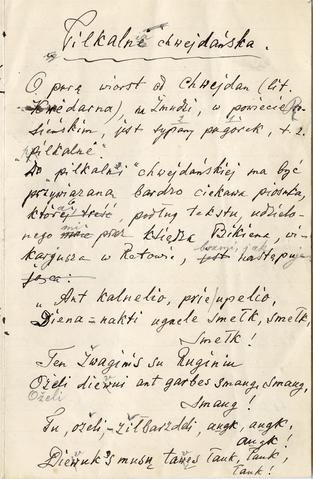 Pilkalnė chwejdańska.
O parę wiorst od Chwejdan (lit.
Kwedarna), na Żmudzi, w powiecie Ro-
sieńskim, jest sypany pagórek, t. z.
"pilkalnė"
Do "pilkalni" chwejdańskiej ma być
przywiązana bardzo ciekawa piosnka,
której treść, podług tekstu, udzielo-
nego mnie przez księdza wi-
kargusza w Retowie, brzmi, jak następuje
"Ant kalnelio, prie upelio,
Diena-nakti ugnele smełk, smełk,
Smełk!
Ten Żwaginis su Ruginiu
Ożeli diewui ant garbes smang, smang,
Smang!
Tu, ożeli, żiłbarzddi, angk, angk,
angk!
Diewuk's musų tawęs łauk, łauk,
łauk!